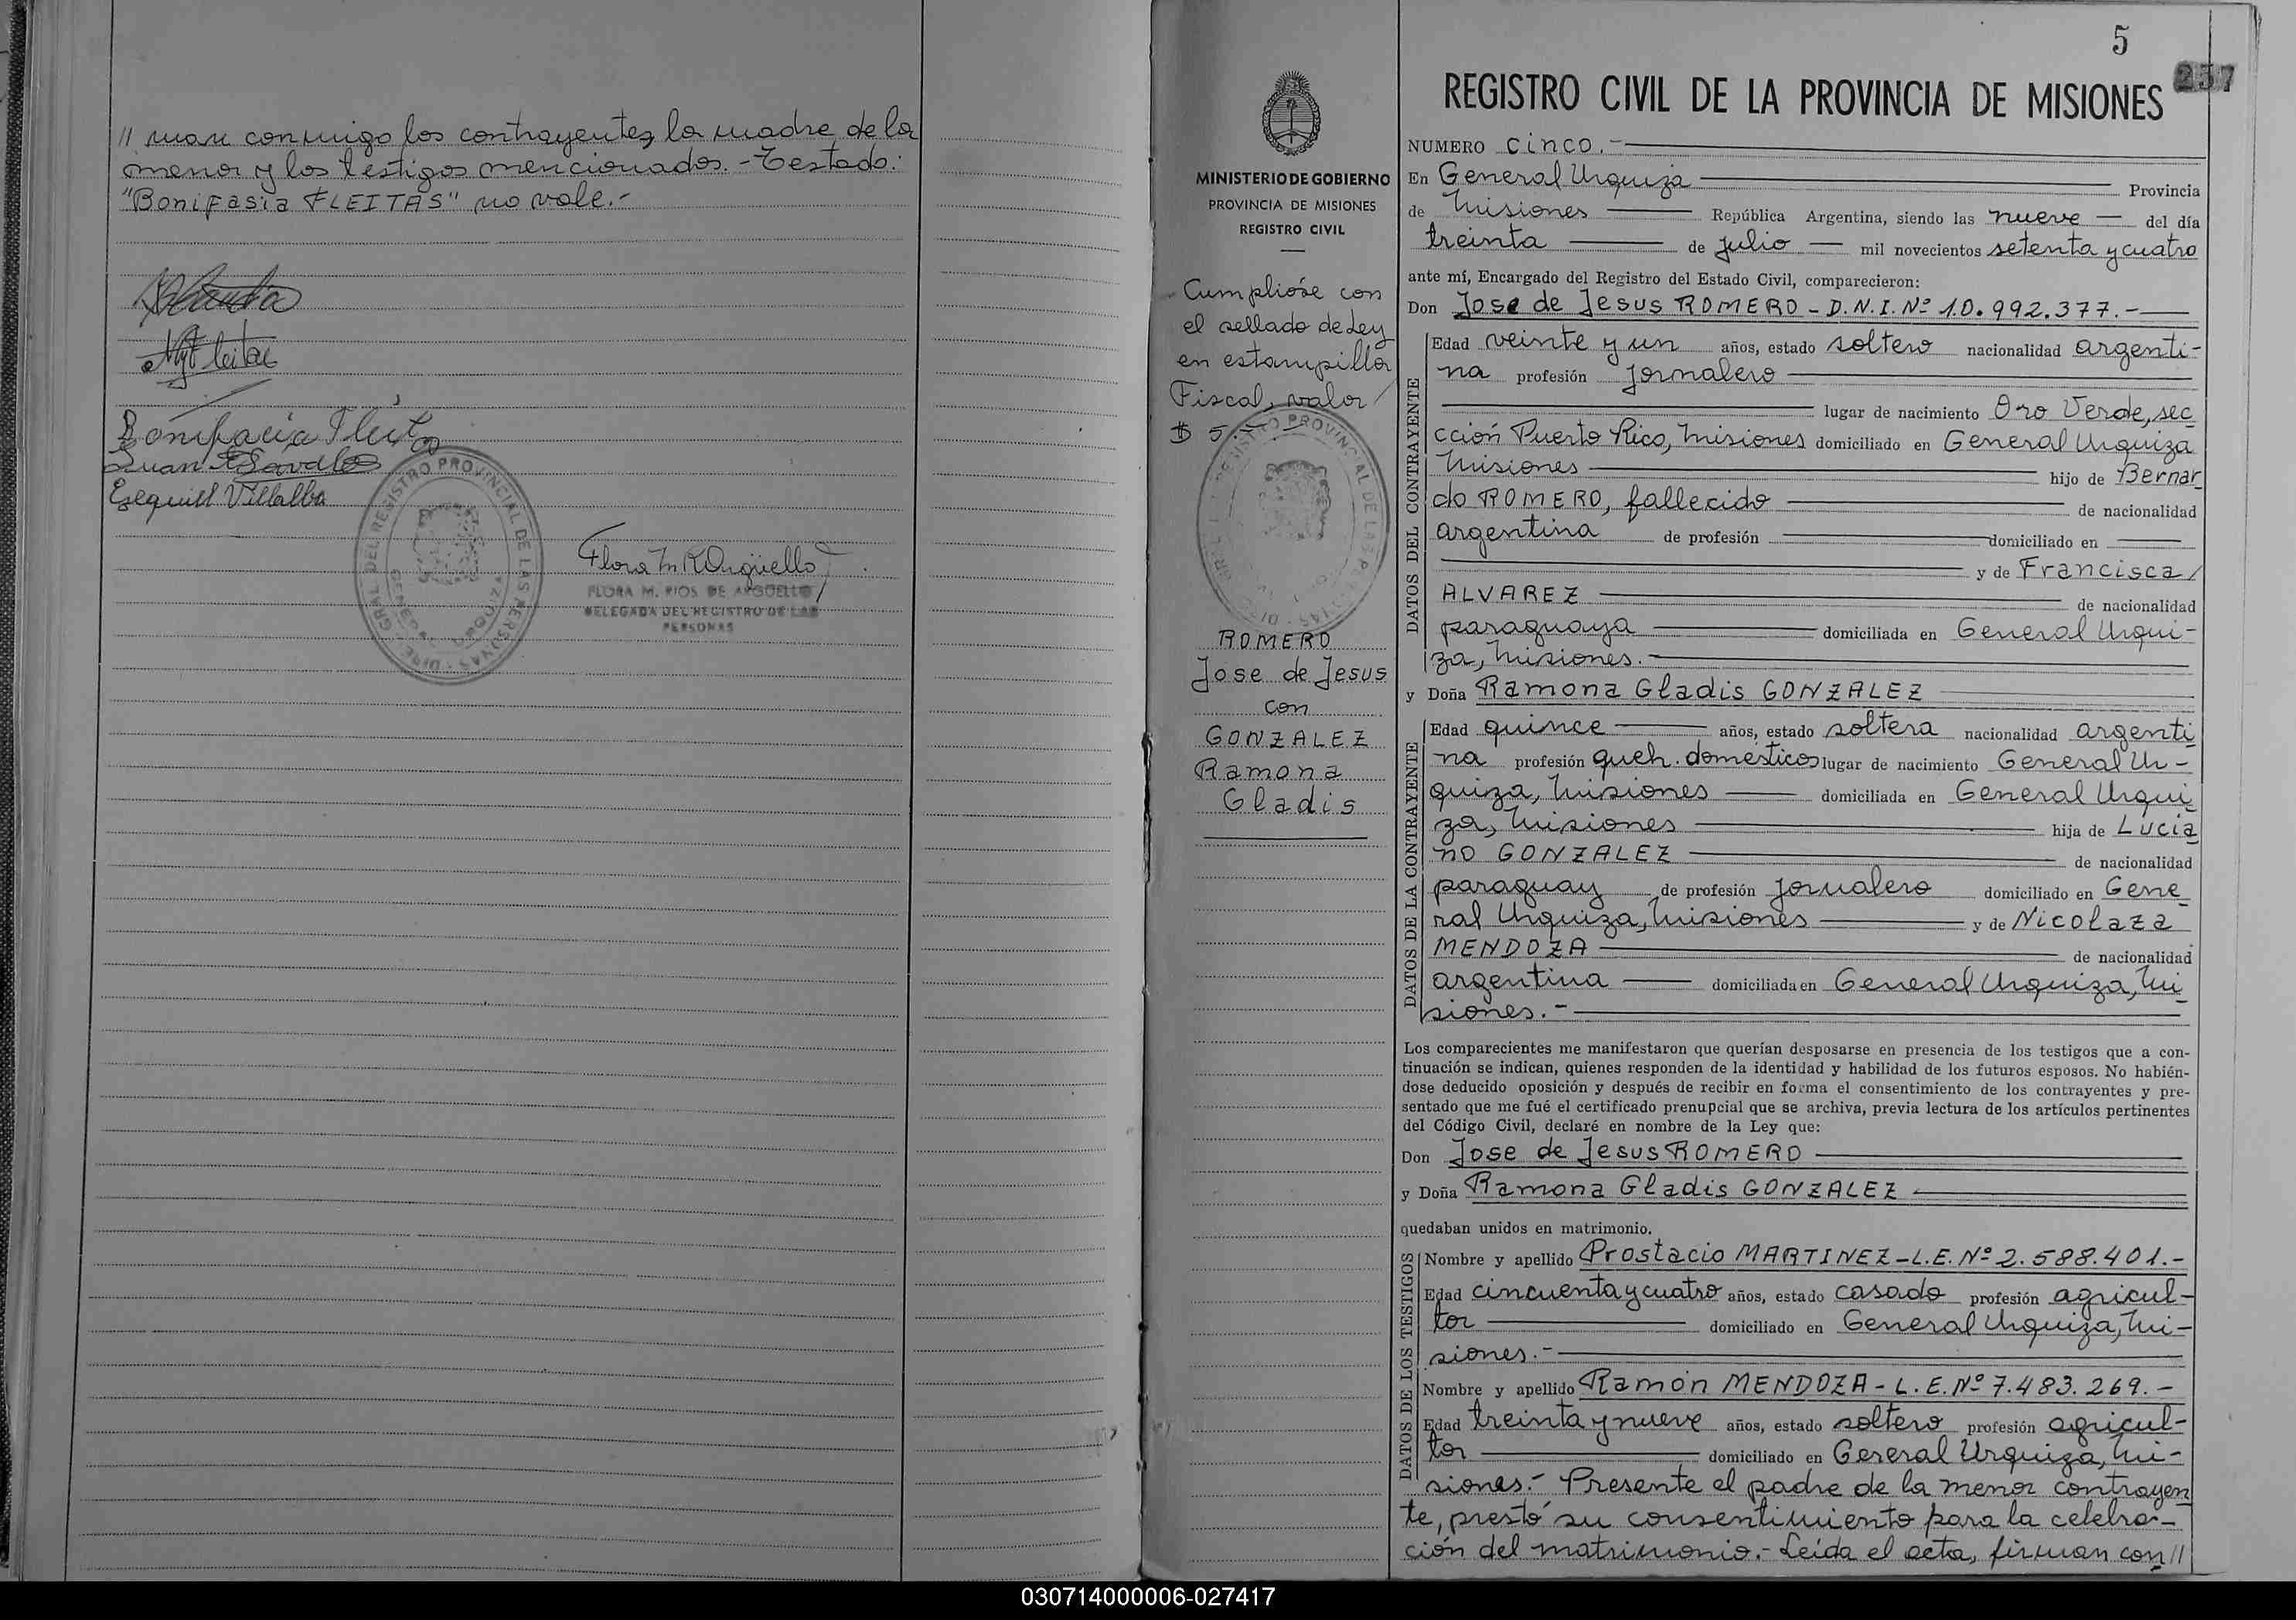 // man conmigo los contrayentes, la madre de la
menor y los testigos mencionados.-Testado:
"Bonifasia FLEITAS" no vale.-
Bonifacia Fleitas
Juan
Esequiel Villalba
Flora M R Argüello
FLORA M. RIOS DE ARGÜELLO
DELEGADA DEL REGISTRO DE LAS
PERSONAS
5
237
MINISTERIO DE GOBIERNO
PROVINCIA DE MISIONES
REGISTRO CIVIL
Cumplióse con
el sellado de Ley
en estampilla
Fiscal, valor /
$ 5
ROMERO
Jose de Jesus
con
GONZALEZ
Ramona
Gladis
REGISTRO CIVIL DE LA PROVINCIA DE MISIONES
NUMERO cinco.-
En General Urquiza Provincia
de Misiones República Argentina, siendo las nueve del día
treinta de julio mil novecientos setenta y cuatro
ante mí, Encargado del Registro del Estado Civil, comparecieron:
Don Jose de Jesus ROMERO - D.N.I. Nº 10.992.377.-
DATOS DEL CONTRAYENTE
Edad veinte y un años, estado soltero nacionalidad argenti-
na profesión jornalero
lugar de nacimiento Oro Verde, sec
cción Puerto Rico, Misiones domiciliado en General Urquiza
Misiones hijo de Bernar
do ROMERO, fallecido de nacionalidad
argentina de profesión domiciliado en
y de Francisca /
ALVAREZ de nacionalidad
paraguaya domiciliada en General Urqui-
za, Misiones.-
y Doña Ramona Gladis GONZALEZ
DATOS DE LA CONTRAYENTE
Edad quince años, estado soltera nacionalidad argenti
na profesión queh. domésticos lugar de nacimiento General Ur-
quiza, Misiones domiciliada en General Urqui
za, Misiones hija de Lucia
no GONZALEZ de nacionalidad
paraguay de profesión jornalero domiciliado en Gene
ral Urquiza, Misiones y de Nicolaza
MENDOZA de nacionalidad
argentina domiciliada en General Urquiza, Mi
siones.-
Los comparecientes me manifestaron que querían desposarse en presencia de los testigos que a con-
tinuación se indican, quienes responden de la identidad y habilidad de los futuros esposos. No habién-
dose deducido oposición y después de recibir en forma el consentimiento de los contrayentes y pre-
sentado que me fué el certificado prenupcial que se archiva, previa lectura de los artículos pertinentes
del Código Civil, declaré en nombre de la Ley que:
Don Jose de Jesus ROMERO
y Doña Ramona Gladis GONZALEZ
quedaban unidos en matrimonio.
DATOS DE LOS TESTIGOS
Nombre y apellido Prostacio MARTINEZ - L.E. Nº 2.588.401.-
Edad cincuenta y cuatro años, estado casado profesión agricul-
tor domiciliado en General Urquiza, Mi-
siones.-
Nombre y apellido Ramón MENDOZA - L.E. Nº 7.483.269.-
Edad treinta y nueve años, estado soltero profesión agricul-
tor domiciliado en General Urquiza, Mi-
siones.- Presente el padre de la menor contrayen
te, prestó su consentimiento para la celebra-
ción del matrimonio.- Leída el acta, firman con //
030714000006-027417